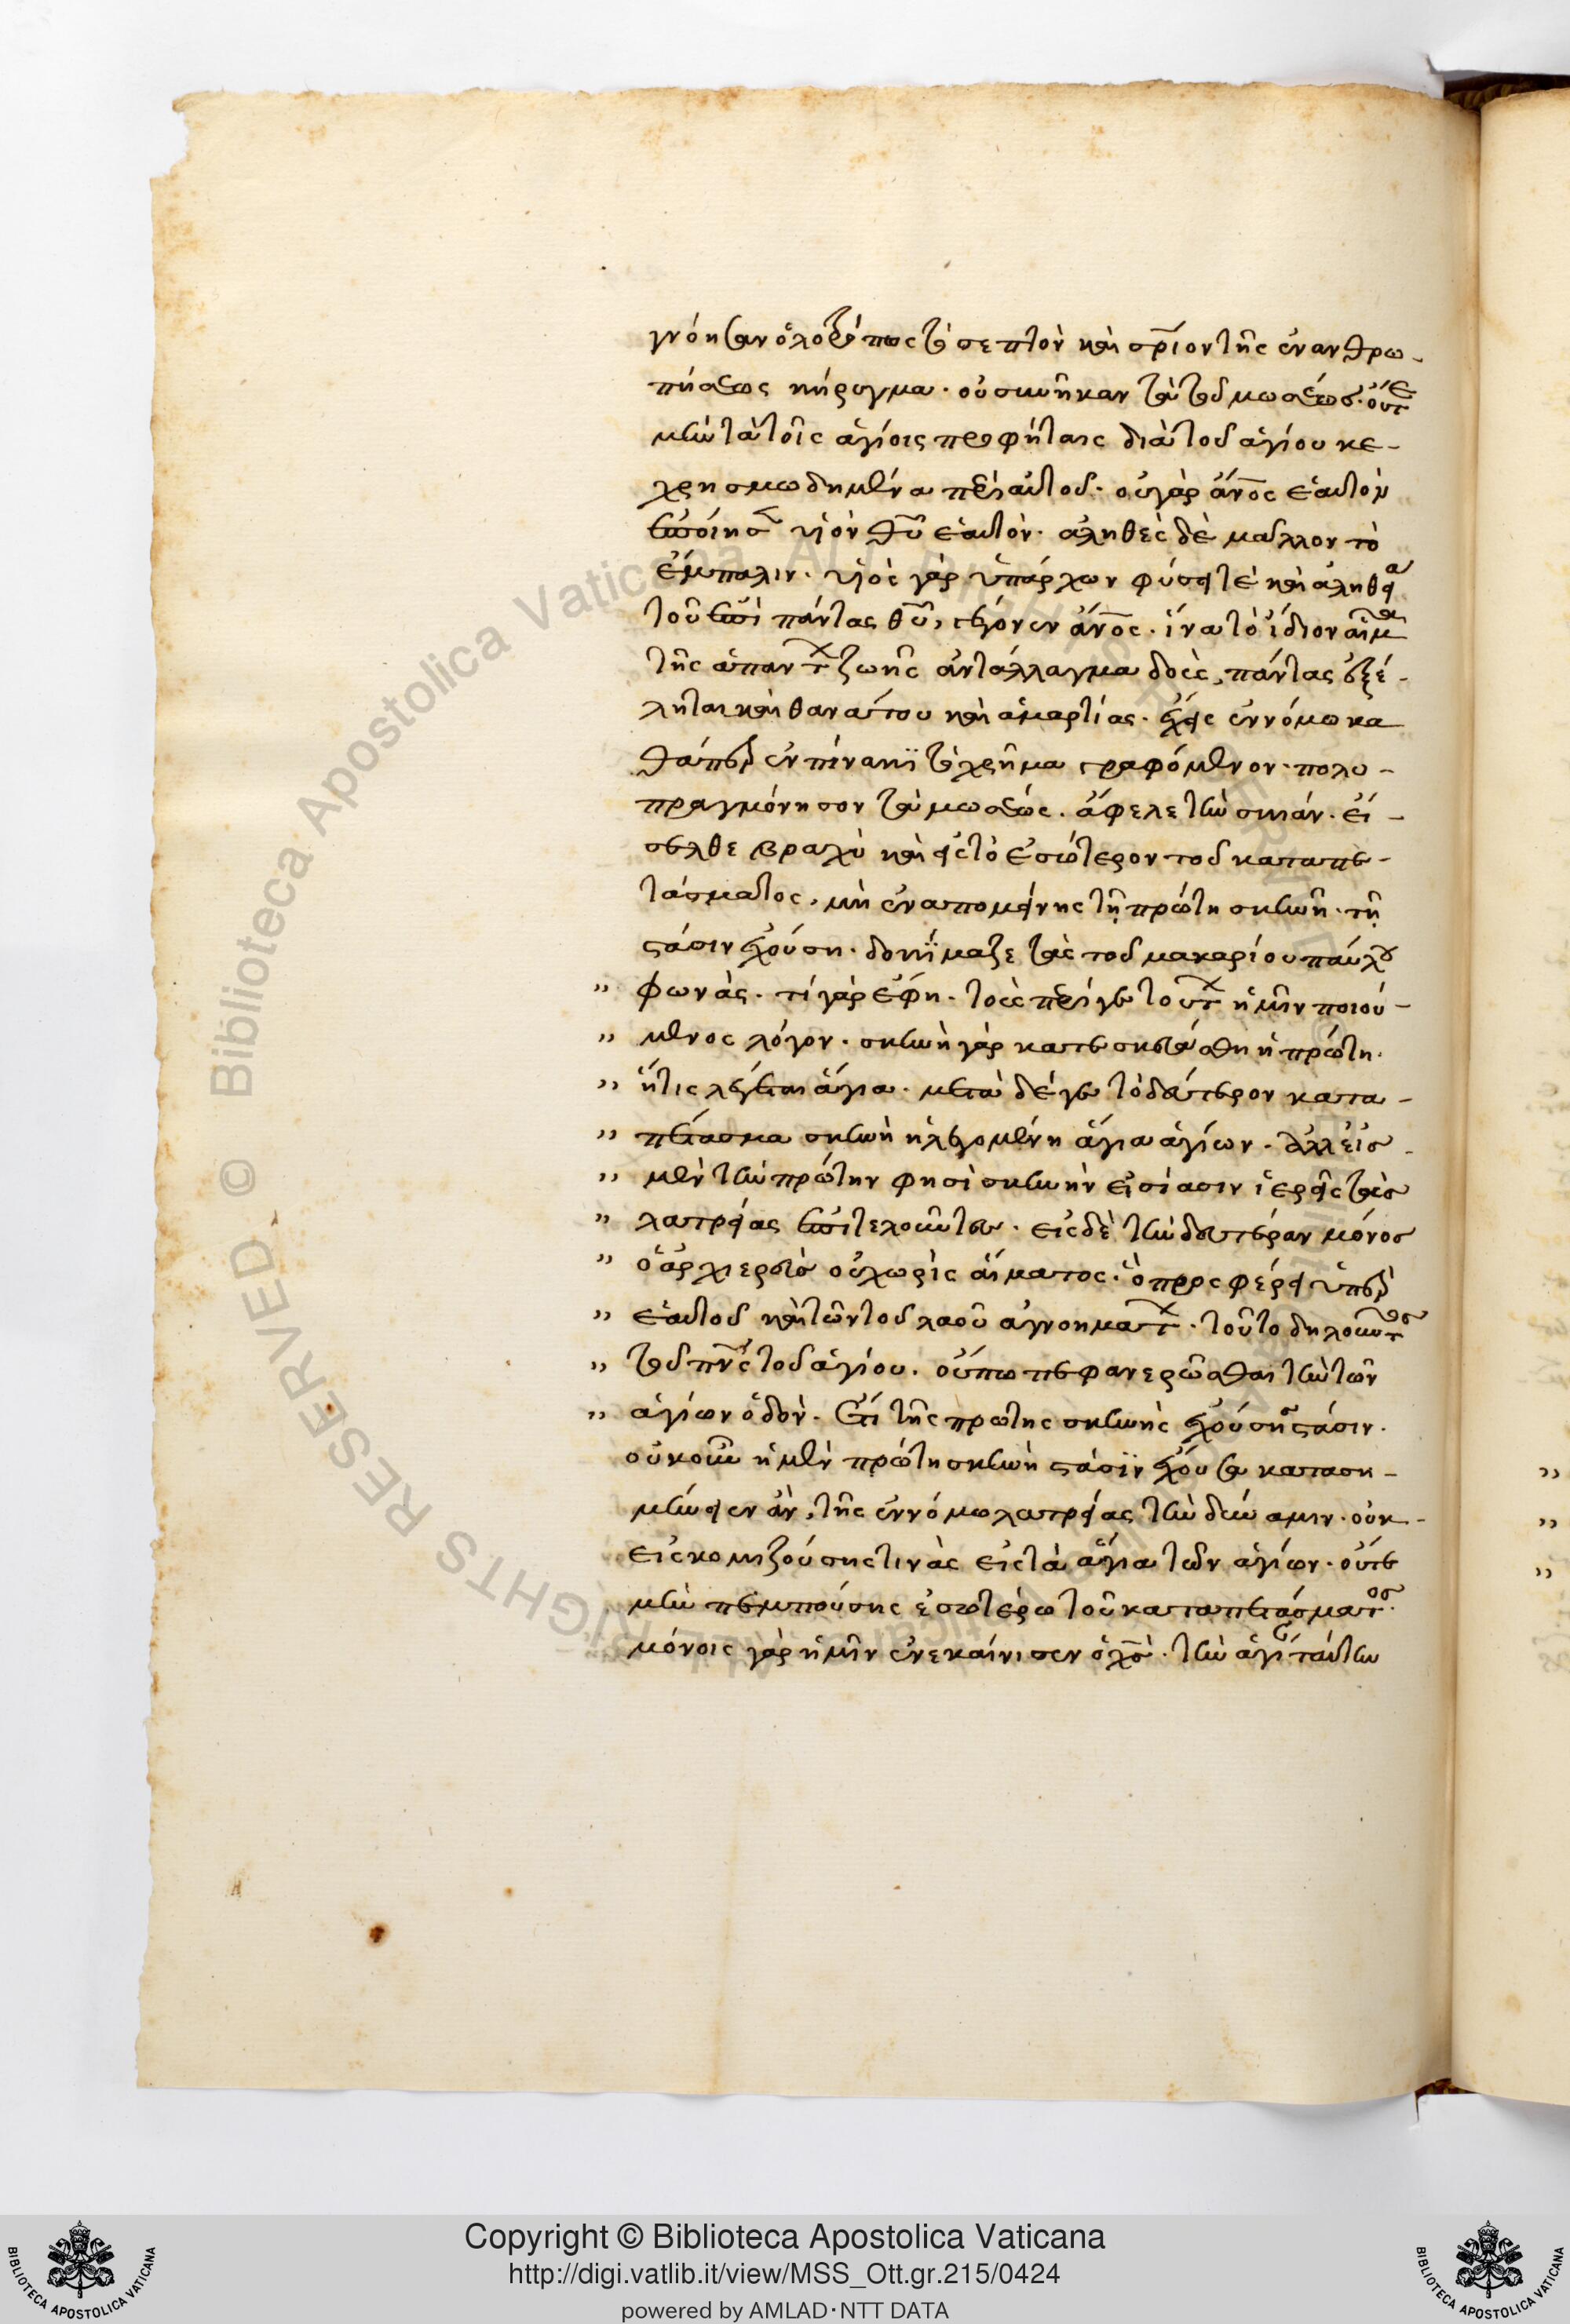 γνόησαν ὁλοτρόπως τὸ σεπτὸν καὶ σρ̅ιον τῆς ἐνανθρω-
πήσεως κήρυγμα. οὐ συνῆκαν τὰ τοῦ μωσέως. οὔτε
μὴν τὰ τοῖς ἁγίοις προφήταις διὰ τοῦ ἁγίου κε-
χρησμωδημένα περὶ αὐτοῦ. οὐ γὰρ ἄνο̅ς ἑαυτὸν
ἐποίησ υἱὸν θυ̅ ἑαυτόν. ἀληθὲς δὲ μᾶλλον τὸ
ἔμπαλιν. υἱὸς γὰρ ὑπάρχων φύσει τὲ καὶ ἀληθεία
τοῦ ἐπὶ πάντας θυ̅, γέγονεν ἄνο̅ς. ἵνα τὸ ἴδιον αἷμα
τῆς ἁπάντων ζωῆς ἀντάλλαγμα δοὺς, πάντας ἐξέ-
ληται καὶ θανάτου καὶ ἁμαρτίας. ἔχεις ἐν νόμω κα
θάπερ ἐν πίνακϊ τὸ χρῆμα γραφόμενον. πολυ-
πραγμόνησον τὰ μωσέως. ἄφελε τὴν σκιάν. εἴ-
σελθε βραχὺ καὶ εἰς τὸ ἐσώτερον τοῦ καταπε-
τάσματος. μὴ ἐναπομείνης τῆ πρώτη σκηνῆ. τῆ
στάσιν ἐχούση. δοκίμαζε τὰς τοῦ μακαρίου παύλου
" φωνάς. τί γὰρ ἔφη. τοὺς περί γε τούτων ἡμῖν ποιού-
" μενος λόγον. σκηνὴ γὰρ κατεσκευάσθη ἡ πρώτη.
" ἥτις λέγεται ἅγια. μετὰ δέ γε τὸ δεύτερον κατα-
" πέτασμα σκηνὴ ἡ λεγομένη ἅγια ἁγίων. ἀλλ' εἰς
" μὲν τὴν πρώτην φησὶ σκηνὴν εἰσίασιν ἱερεῖς τὰς
" λατρείας ἐπιτελοῦντες. εἰς δὲ τὴν δευτέραν μόνος
" ὁ ἀρχιερεὺς οὐ χωρὶς αἵματος. ὃ προσφέρει ὑπὲρ
" ἑαυτοῦ καὶ τῶν τοῦ λαοῦ ἀγνοημάτων. τοῦτο δηλοῦντος
" τοῦ πνς̅ τοῦ ἁγίου. οὔπω πεφανερῶσθαι τὴν τῶν
" ἁγίων ὁδόν. ἔτι τῆς πρώτης σκηνῆς ἐχούσης στάσιν.
οὐκοῦν ἡ μὲν πρώτη σκηνὴ στάσϊν ἔχουσα κατασκ-
μήνειεν ἂν, τῆς ἐν νόμω λατρείας τὴν δύναμιν. οὐκ
εἰσκομιζούσης τινὰς εἰς τὰ ἅγια τῶν ἁγίων. οὔτε
μὴν πεμπούσης ἐσωτέρω τοῦ καταπετάσματος.
μόνοις γὰρ ἡμῖν ἐνεκαίνισεν ὁ χσ̅. τὴν ἁγί ταύτην
Copyright © Biblioteca Apostolica Vaticana
http://digi.vatlib.it/view/MSS_Ott.gr.215/0424
powered by AMLAD·NTT DATA